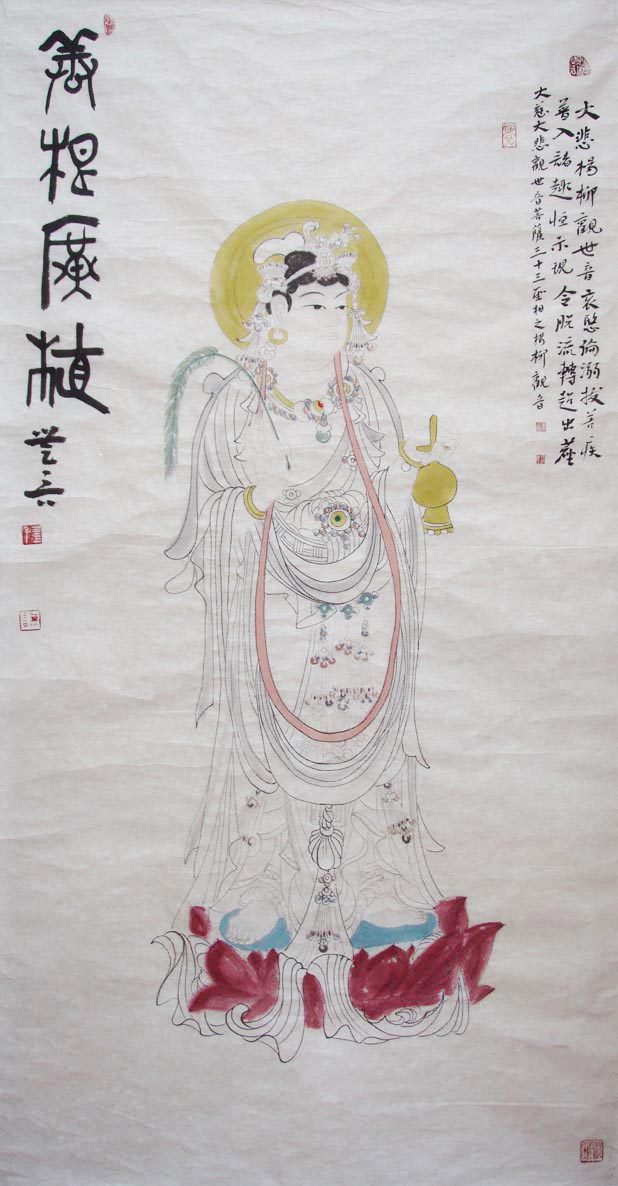 大悲楊柳觀世音哀愍淪溺拔苦疾
普入諸趣恒示現令脫流轉超出塵
大慈大悲觀世音菩薩三十三聖相之楊柳觀音
善根廣植